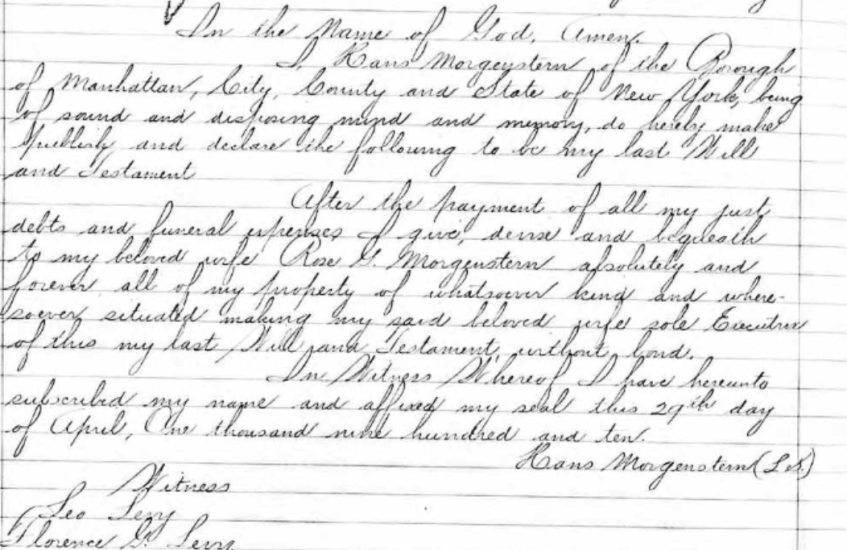 In the Name of God, Amen.
I, Hans Morgenstern of the Borough
of Manhattan, City, County and State of New York, being
of sound and disposing mind and memory, do hereby make
publish and declare the following to be my last Will
and Testament
After the payment of all my just
debts and funeral expenses I give, devise and bequeath
to my beloved wife Rose G. Morgenstern absolutely and
forever all of my property of whatsoever kind and where-
soever situated making my said beloved wife sole Executrix
of this my last Will and Testament, without bond.
In Witness Whereof I have hereunto
subscribed my name and affixed my seal this 29th day
of April, One thousand nine hundred and ten.
Hans Morgenstern (L.S.)
Witness
Leo Levy
Florence G. Levy